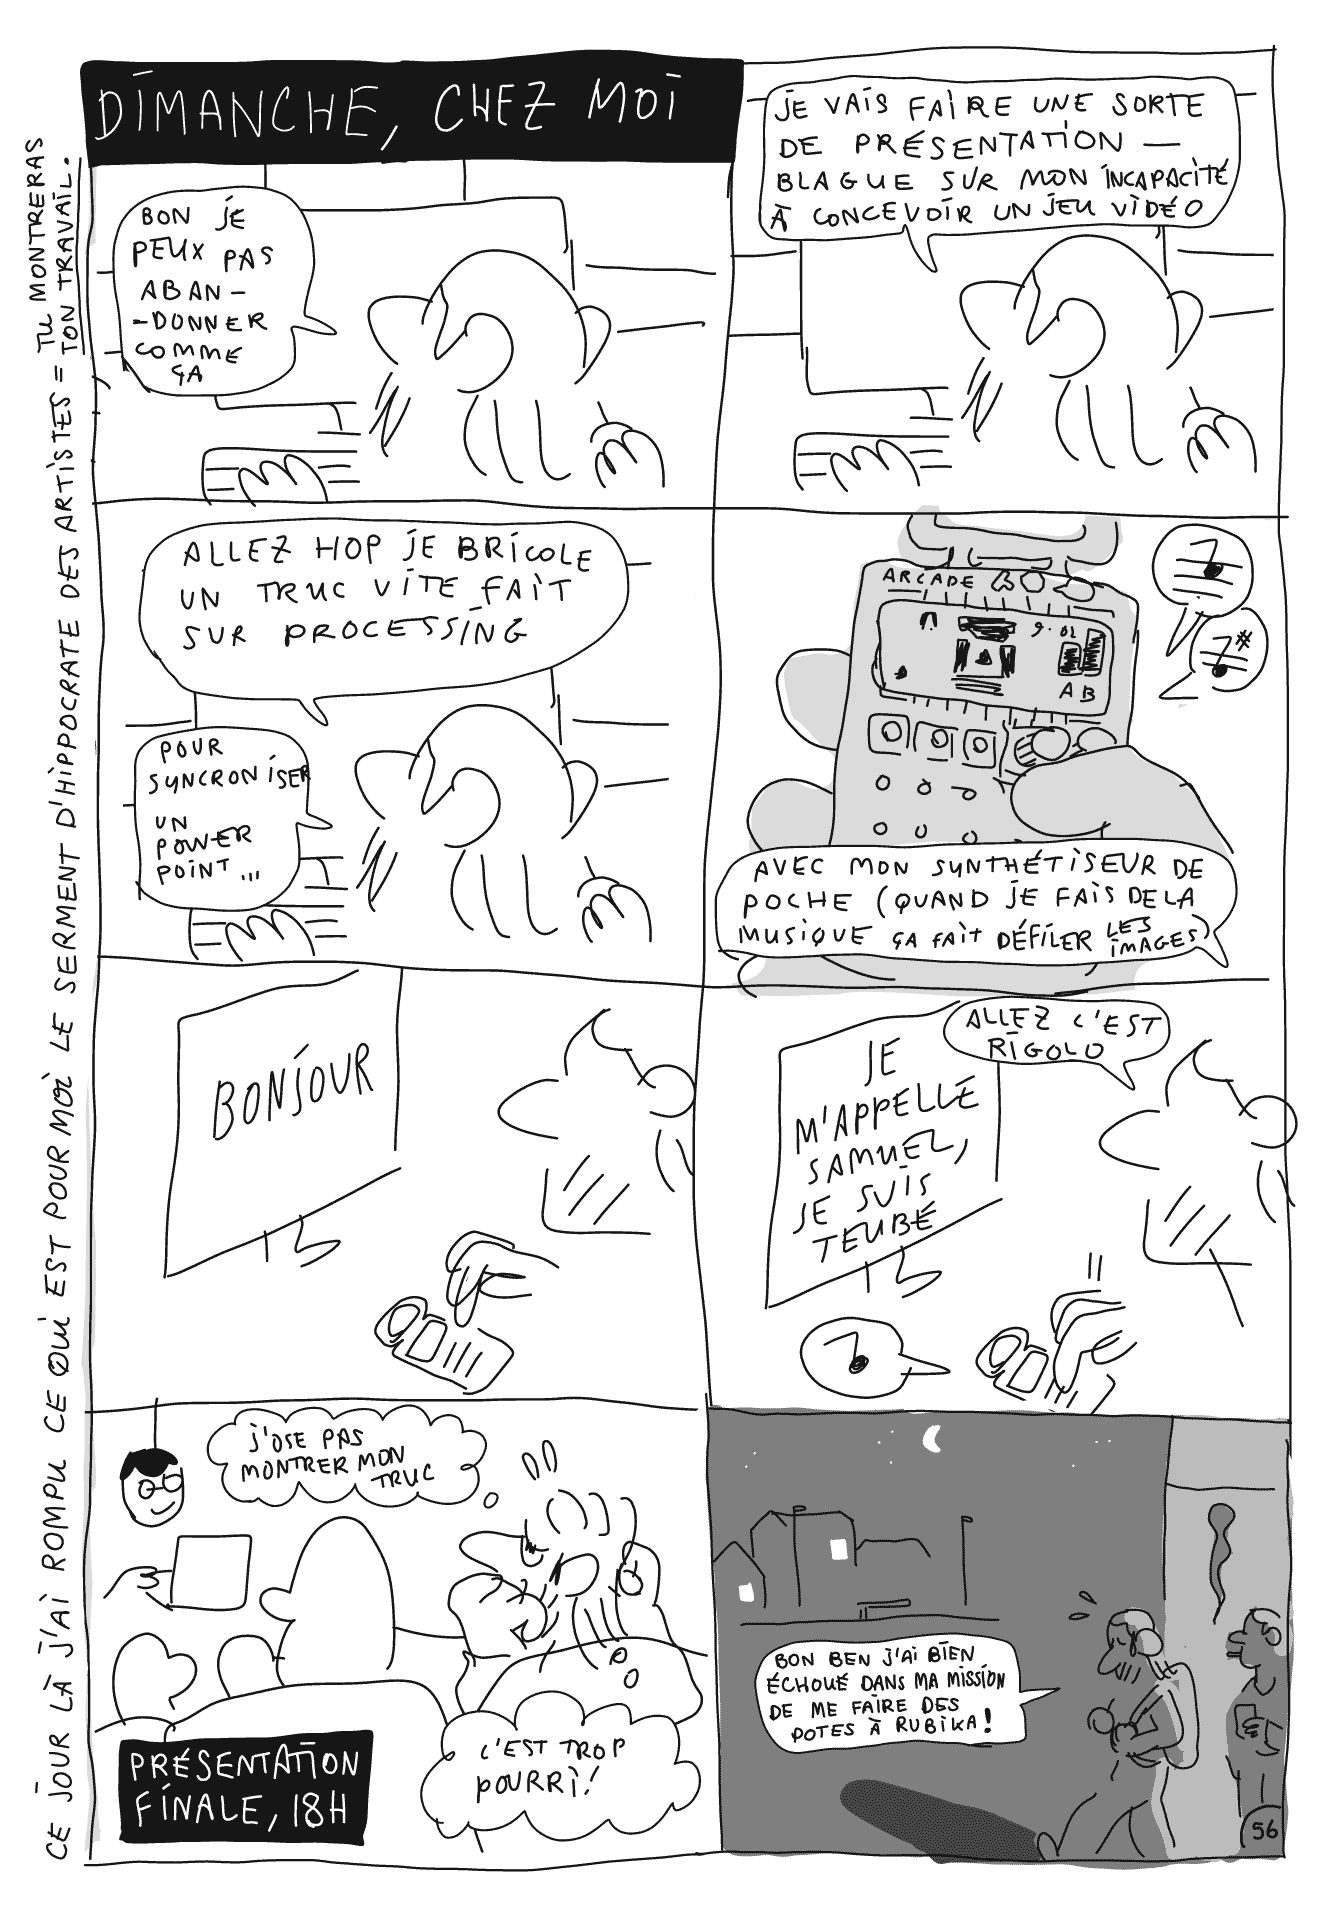 DIMANCHE, CHEZ MOI
BON JE
PEUX PAS
ABAN -
- DONNER
COMME
ÇA
JE VAIS FAIRE UNE SORTE
DE PRÉSENTATION —
BLAGUE SUR MON INCAPACITÉ
À CONCEVOIR UN JEU VIDÉO
ALLEZ HOP JE BRICOLE
UN TRUC VITE FAIT
SUR PROCESSING
POUR
SYNCRONISER
UN
POWER
POINT...
ARCADE
9.02
A B
AVEC MON SYNTHÉTISEUR DE
POCHE (QUAND JE FAIS DE LA
MUSIQUE ÇA FAIT DÉFILER LES
IMAGES)
BONJOUR
ALLEZ C'EST
RIGOLO
JE
M'APPELLE
SAMUEL,
JE SUIS
TEUBÉ
J'OSE PAS
MONTRER MON
TRUC
C'EST TROP
POURRI!
PRÉSENTATION
FINALE, 18H
BON BEN J'AI BIEN
ÉCHOUÉ DANS MA MISSION
DE ME FAIRE DES
POTES À RUBIKA!
56
CE JOUR LÀ J'AI ROMPU CE QUI EST POUR MOI LE SERMENT D'HIPPOCRATE DES ARTISTES = TU MONTRERAS
TON TRAVAIL.